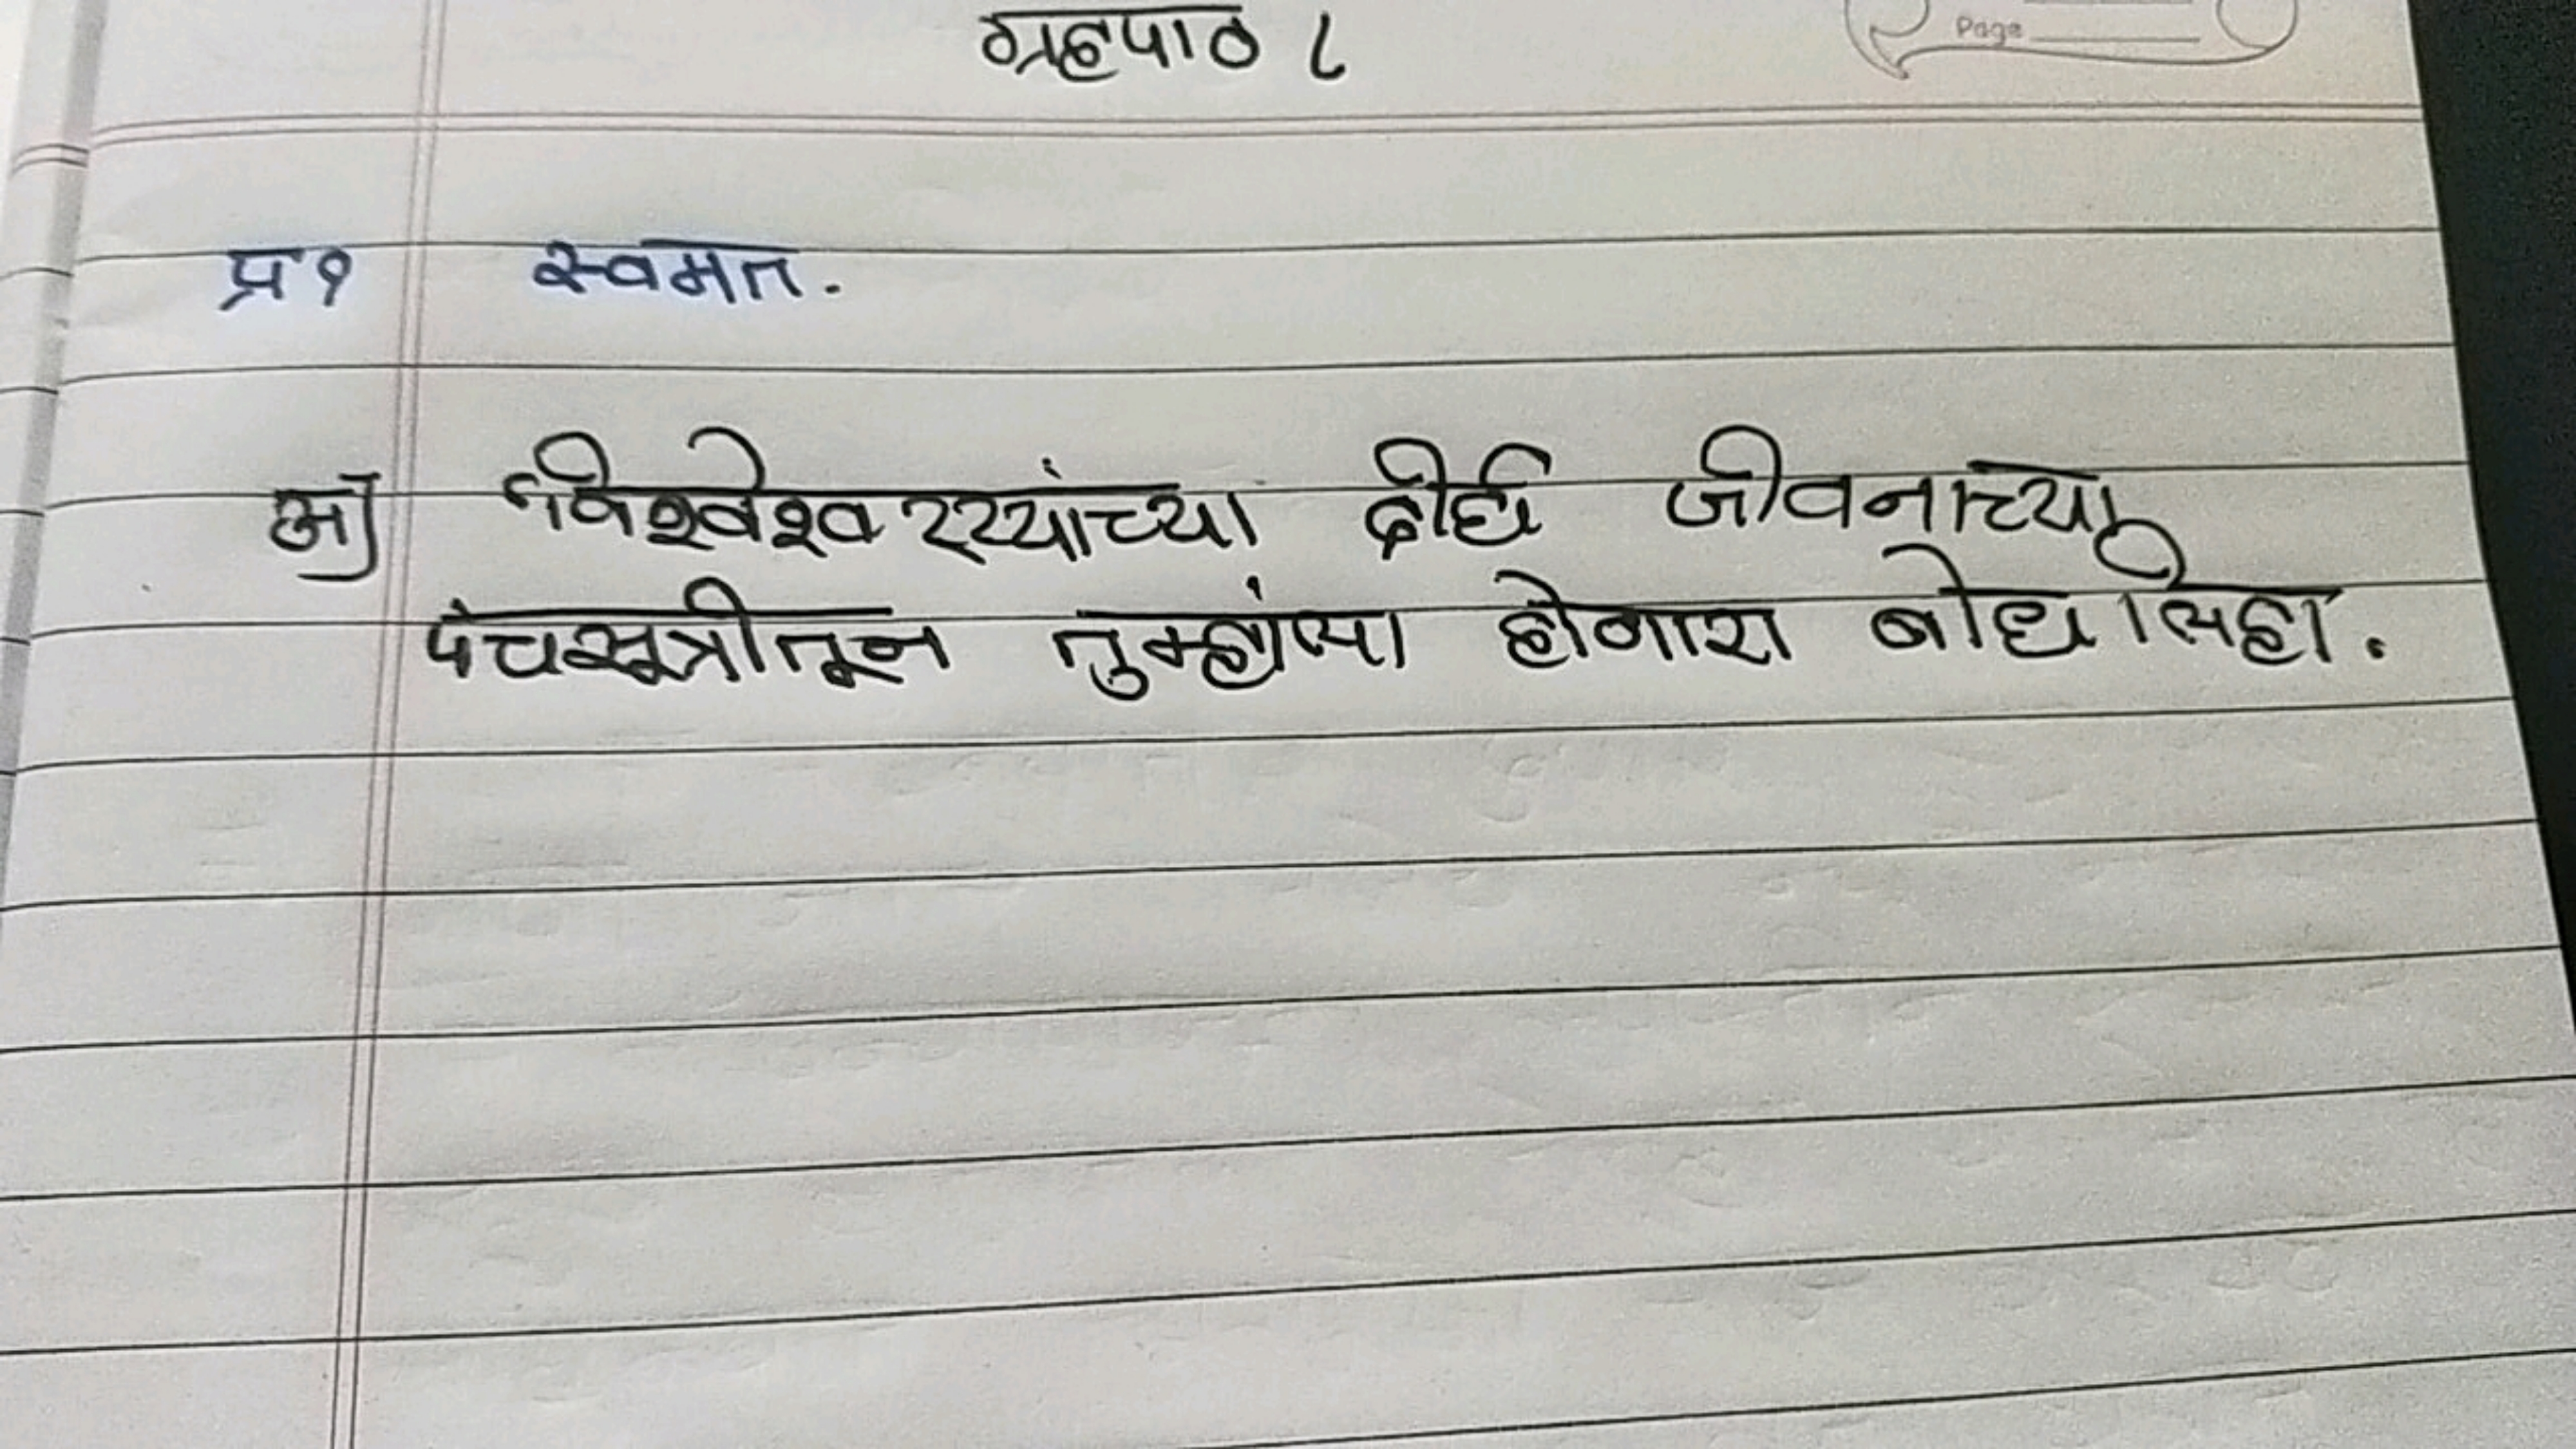 ग्रहपाठ ८
Page
प्र१ स्वमत.
अ) विश्वेश्वरय्यांच्या दीर्घ जीवनाच्या
पंचसूत्रीतून तुम्हांला होणारा बोध लिहा.